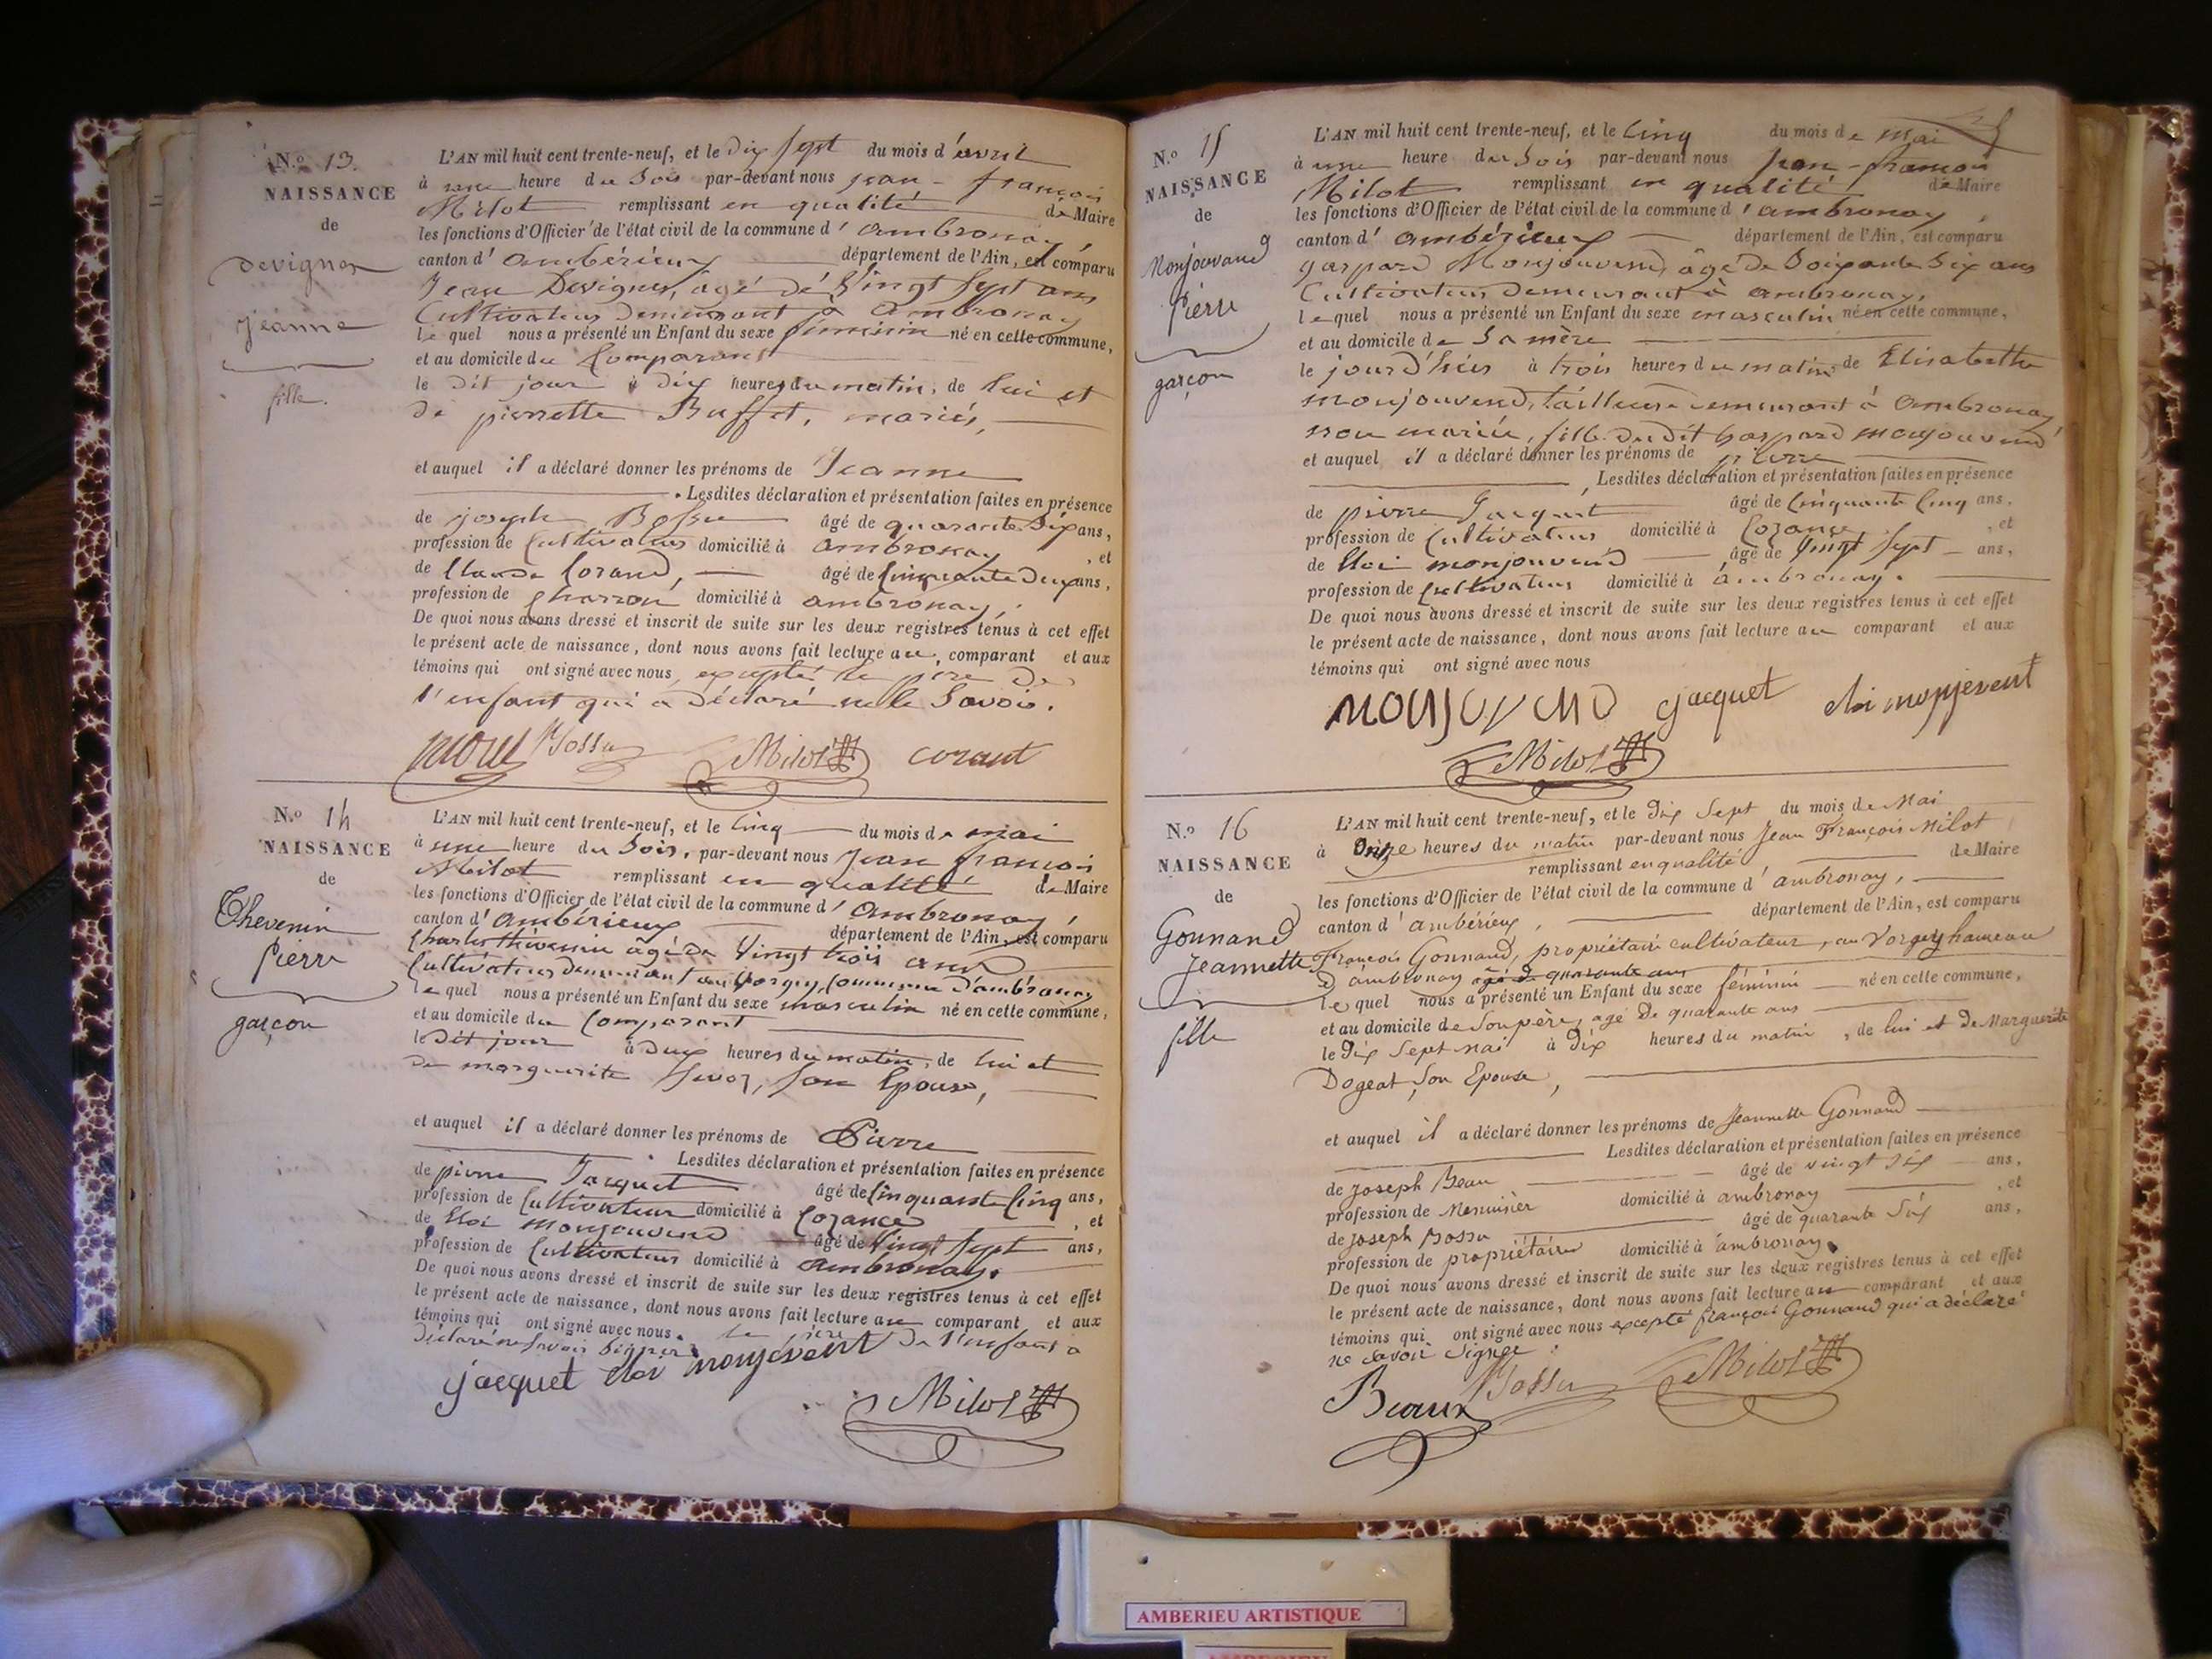 N.o 13.
NAISSANCE
de
Devignes
Jeanne
fille.
L'AN mil huit cent trente-neuf, et le dix sept du mois d'avril
à une heure du Soir par-devant nous jean-françois
Milot remplissant en qualité de Maire
les fonctions d'Officier de l'état civil de la commune d'ambronay,
canton d'ambérieux département de l'Ain, est comparu
Jean Devignes, agé de Vingt sept ans
Cultivateur demeurant à Ambronay
lequel nous a présenté un Enfant du sexe féminin né en cette commune,
et au domicile du Comparant
le dit jour à dix heures du matin, de lui et
de pierrette Buffet, mariés,
et auquel il a déclaré donner les prénoms de Jeanne
Lesdites déclaration et présentation faites en présence
de joseph Bossu âgé de quarante Six ans,
profession de Cultivateur domicilié à ambronay, et
de Claude Corand, âgé de Cinquante deux ans,
profession de Charron domicilié à ambronay,
De quoi nous avons dressé et inscrit de suite sur les deux registres tenus à cet effet
le présent acte de naissance, dont nous avons fait lecture au comparant et aux
témoins qui ont signé avec nous, excepté le père de
l'enfant qui a déclaré ne le Savoir.
Bossu Milot corant
N.o 14
NAISSANCE
de
Thevenin
Pierre
garçon
L'AN mil huit cent trente-neuf, et le Cinq du mois de mai
à une heure du Soir, par-devant nous Jean françois
Milot remplissant en qualité de Maire
les fonctions d'Officier de l'état civil de la commune d'Ambronay,
canton d'ambérieux département de l'Ain, est comparu
Charles thévenin âgé de Vingt trois ans
Cultivateur demeurant au Vorgey, commune d'ambronay
lequel nous a présenté un Enfant du sexe masculin né en cette commune,
et au domicile du Comparant
le dit jour à deux heures du matin, de lui et
de marguerite Son Epouse,
et auquel il a déclaré donner les prénoms de Pierre
Lesdites déclaration et présentation faites en présence
de pierre Jacquet âgé de Cinquante Cinq ans,
profession de Cultivateur domicilié à Cozance, et
de Eloi monjouvend âgé de Vingt Sept ans,
profession de Cultivateur domicilié à Ambronay.
De quoi nous avons dressé et inscrit de suite sur les deux registres tenus à cet effet
le présent acte de naissance, dont nous avons fait lecture au comparant et aux
témoins qui ont signé avec nous. le père de l'enfant a
déclaré ne savoir Signer.
jacquet eloi monjevent
Milot
N.o 15
NAISSANCE
de
Monjouvand
Pierre
garçon
L'AN mil huit cent trente-neuf, et le Cinq du mois de Mai
à une heure du Soir par-devant nous Jean-françois
Milot remplissant en qualité de Maire
les fonctions d'Officier de l'état civil de la commune d'ambronay,
canton d'ambérieux département de l'Ain, est comparu
gaspard Monjouvend, âgé de Soixante Six ans
Cultivateur demeurant à ambronay,
lequel nous a présenté un Enfant du sexe masculin né en cette commune,
et au domicile de Sa mère
le jour d'hier à trois heures du matin de Elisabeth
monjouvend, tailleuse demeurant à ambronay
non mariée, fille dudit gaspard monjouvend
et auquel il a déclaré donner les prénoms de pierre
Lesdites déclaration et présentation faites en présence
de pierre Jacquet âgé de Cinquante Cinq ans,
profession de Cultivateur domicilié à Cozance, et
de Eloi monjouvend âgé de Vingt Sept ans,
profession de Cultivateur domicilié à ambronay.
De quoi nous avons dressé et inscrit de suite sur les deux registres tenus à cet effet
le présent acte de naissance, dont nous avons fait lecture au comparant et aux
témoins qui ont signé avec nous
monjovend jacquet eloi monjevent
Milot
N.o 16
NAISSANCE
de
Gonnand
Jeannette
fille
L'AN mil huit cent trente-neuf, et le Dix Sept du mois de Mai
à Onze heures du matin par-devant nous Jean François Milot
remplissant en qualité de Maire
les fonctions d'Officier de l'état civil de la commune d'ambronay,
canton d'ambérieux, département de l'Ain, est comparu
François Gonnand, propriétaire cultivateur, au Vorgey hameau
d'ambronay âgé de quarante ans
lequel nous a présenté un Enfant du sexe féminin né en cette commune,
et au domicile de Son père, agé de quarante ans
le Dix Sept mai à Dix heures du matin, de lui et de Marguerite
Dogeat, Son Epouse,
et auquel il a déclaré donner les prénoms de Jeannette Gonnand
Lesdites déclaration et présentation faites en présence
de Joseph Beau âgé de vingt Six ans,
profession de Menuisier domicilié à ambronay, et
de joseph Bossu âgé de quarante Six ans,
profession de propriétaire domicilié à ambronay.
De quoi nous avons dressé et inscrit de suite sur les deux registres tenus à cet effet
le présent acte de naissance, dont nous avons fait lecture au comparant et aux
témoins qui ont signé avec nous excepté françois Gonnand qui a déclaré
ne Savoir Signer
Beaux Bossu Milot
AMBERIEU ARTISTIQUE